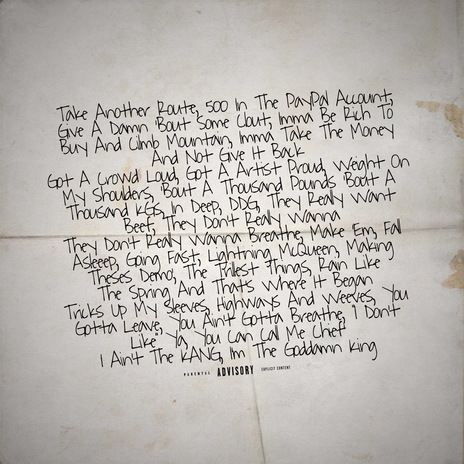 Take Another Route, 500 In The PayPal Account,
Give A Damn 'Bout Some Clout, Imma Be Rich To
Buy And Climb Mountain, Imma Take The Money
And Not Give It Back
Got A Crowd Loud, Got A Artist Proud, Weight On
My Shoulders, 'Bout A Thousand Pounds 'Bout A
Thousand KGS, In Deep, DDG, They Really Want
Beef, They Don't Really Wanna
They Don't Really Wanna Breathe, Make Em, Fall
Asleeep, Going Fast, Lightning McQueen, Making
Theses Demo, The Trillest Things, Rain Like
The Spring And That's Where It Began
Tricks Up My Sleeves, Highways And Weeves, You
Gotta Leave, You Ain't Gotta Breathe, I Don't
Like Ya, You Can Call Me Chef
I Ain't The KANG, Im The Goddamn King
PARENTAL ADVISORY EXPLICIT CONTENT